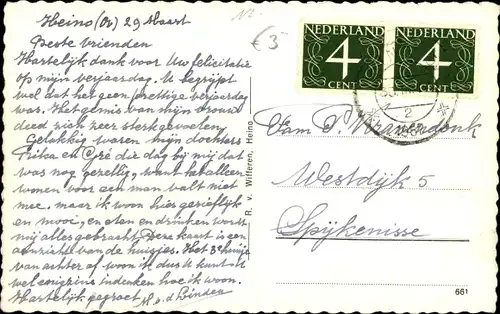 Heino (Ov) 29 Maart
Beste vrienden
Hartelijk dank voor Uw felicitatie
op mijn verjaardag. U begrijpt
wel dat het geen prettige verjaardag
was. Het gemis van mijn vrouw
deed zich zeer sterk gevoelen.
Gelukkig waren mijn dochters
en Cor die dag bij mij dat
was nog gezellig, want alleen
wonen voor een man valt niet
mee. maar ik woon hier gerieflijk
en mooi, en eten en drinken wordt
mij alles gebracht. Deze kaart is een
aanzicht van de huisjes. Het 3e huisje
van achter af woon ik dus U kunt het
wel enigzins indenken hoe ik woon.
Hartelijk gegroet H. v. d. Linden
12
€ 3
R. v. Wifferen, Heino
NEDERLAND
4
CENT
NEDERLAND
4
CENT
2
Fam. P. Kravendonk
Westdijk 5
Spijkenisse
661